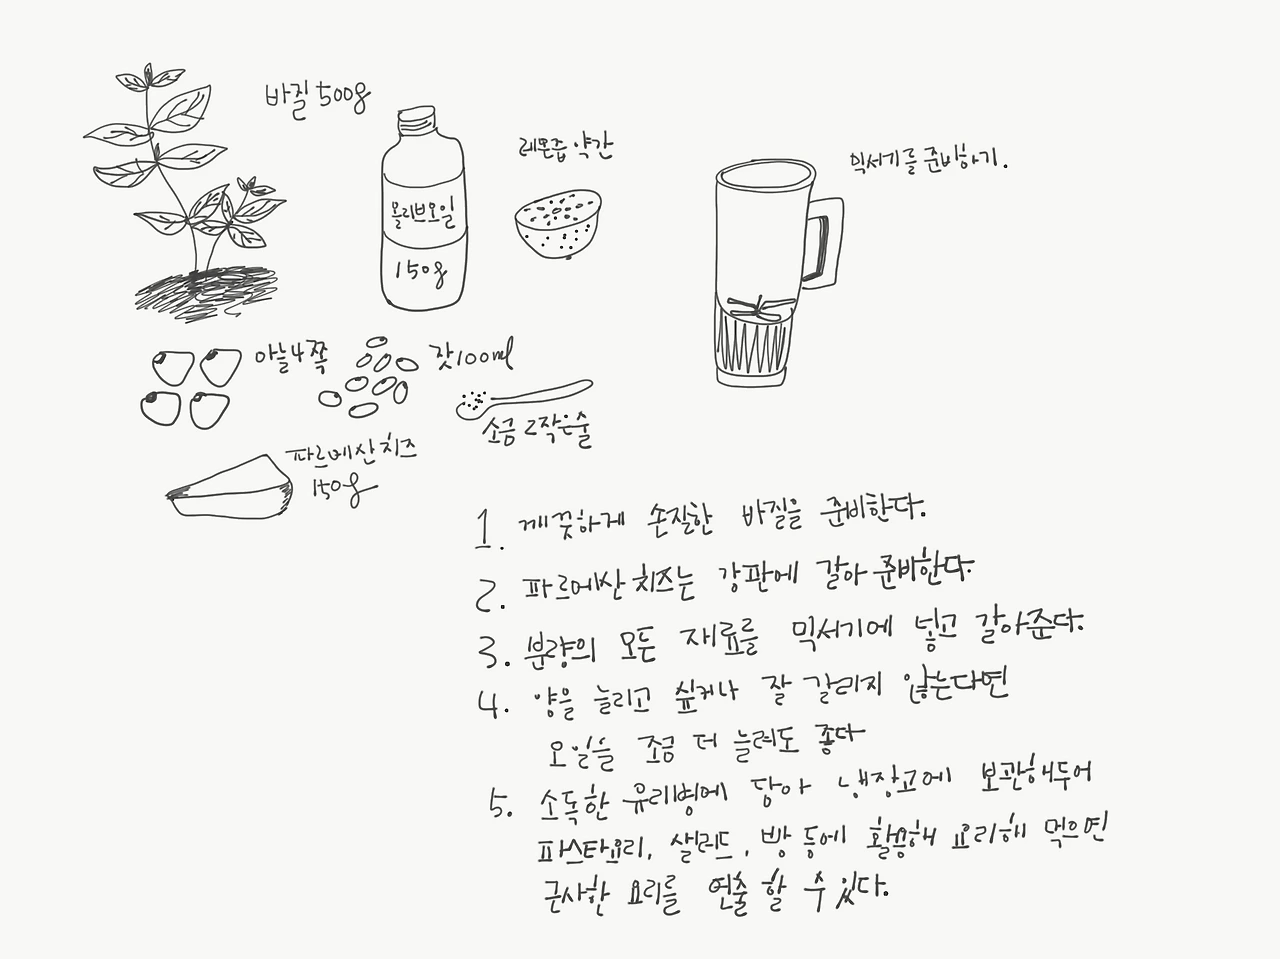 바질 500g
올리브오일
150g
레몬즙 약간
믹서기를 준비하기.
마늘 4쪽
잣 100ml
소금 2작은술
파르메산 치즈
150g
1. 깨끗하게 손질한 바질을 준비한다.
2. 파르메산 치즈는 강판에 갈아 준비한다.
3. 분량의 모든 재료를 믹서기에 넣고 갈아준다.
4. 양을 늘리고 싶거나 잘 갈리지 않는다면
오일을 조금 더 늘려도 좋다
5. 소독한 유리병에 담아 냉장고에 보관해두어
파스타요리, 샐러드, 빵 등에 활용해 요리해 먹으면
근사한 요리를 연출 할 수 있다.